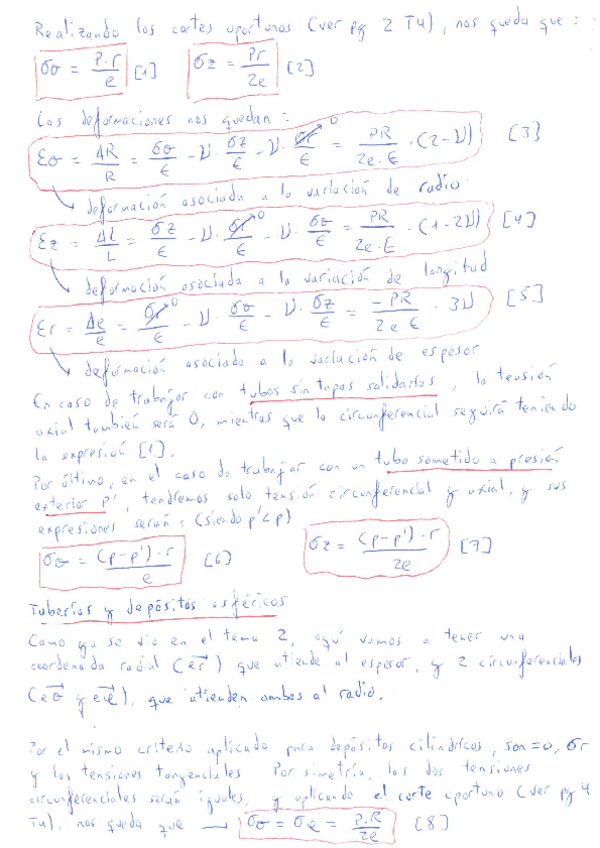 Realizando los cortes oportunos (ver pg 2 T4), nos queda que:
σθ = P·r / e [1] σz = Pr / 2e [2]
Las deformaciones nos quedan:
εθ = ΔR/R = σθ/E - ν·σz/E - ν·σr/E 0 = PR/2e·E · (2-ν) [3]
↳ deformación asociada a la variación de radio
εz = ΔL/L = σz/E - ν·σr/E 0 - ν·σθ/E = PR/2e·E · (1-2ν) [4]
↳ deformación asociada a la variación de longitud
εr = Δe/e = σr/E 0 - ν·σθ/E - ν·σz/E = -PR/2e E · 3ν [5]
↳ deformación asociado a la variación de espesor
En caso de trabajar con tubos sin tapas solidarias, la tensión
axial también será 0, mientras que la circunferencial seguirá teniendo
la expresión [1].
Por último, en el caso de trabajar con un tubo sometido a presión
exterior p', tendremos solo tensión circunferencial y axial, y sus
expresiones serán: (siendo p'<p)
σθ = (p-p')·r / e [6] σz = (p-p')·r / 2e [7]
Tuberías y depósitos esféricos
Como ya se vio en el tema 2, aquí vamos a tener una
coordenada radial (er→) que atiende al espesor, y 2 circunferenciales
(eθ→ y eφ→), que atienden ambos al radio.
Por el mismo criterio aplicado para depósitos cilíndricos, son =0, σr
y las tensiones tangenciales Por simetría, las dos tensiones
circunferenciales serán iguales, y aplicando el corte oportuno (ver pg 4
T4), nos queda que → σθ = σφ = P·R / 2e [8]